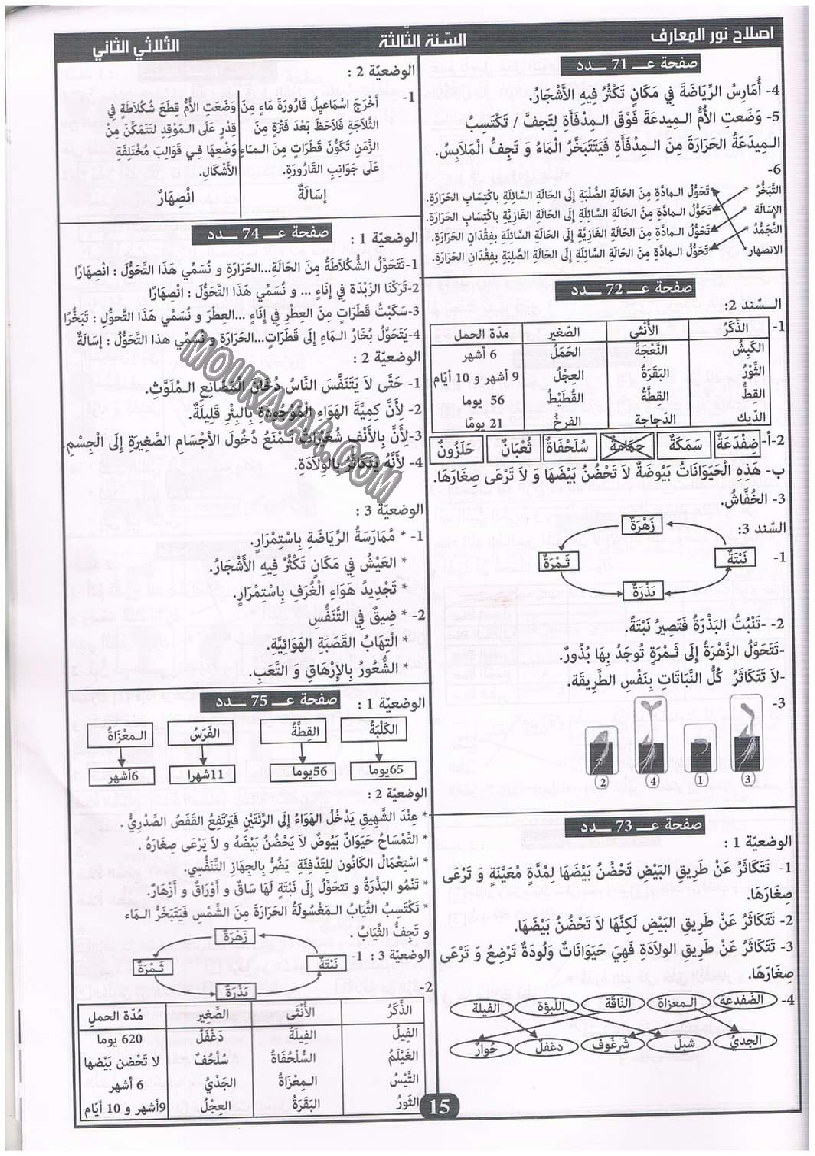 اصلاح نور المعارف
السنة الثالثة
الثلاثي الثاني
صفحة عـ 71 ـدد
4- أُمَارِسُ الرِّيَاضَةَ فِي مَكَانٍ تَكْثُرُ فِيهِ الأَشْجَارُ.
5- وَضَعَتِ الأُمُّ المِيدعَةَ فَوْقَ المِدْفَأَةِ لِتَجِفَّ / تَكْتَسِبُ
المِيدَعَةُ الحَرَارَةَ مِنَ المِدْفَأَةِ فَيَتَبَخَّرُ المَاءُ وَ تَجِفُّ المَلَابِسُ.
6-
التَّبَخُّرُ تَحَوُّلُ المَادَّةِ مِنَ الحَالَةِ الصُّلْبَةِ إِلَى الحَالَةِ السَّائِلَةِ بِاكْتِسَابِ الحَرَارَةِ.
الإسالة تَحَوُّلُ المَادَّةِ مِنَ الحَالَةِ السَّائِلَةِ إِلَى الحَالَةِ الغَازِيَّةِ بِاكْتِسَابِ الحَرَارَةِ.
التَّجَمُّدُ تَحَوُّلُ المَادَّةِ مِنَ الحَالَةِ الغَازِيَّةِ إِلَى الحَالَةِ السَّائِلَةِ بِفِقْدَانِ الحَرَارَةِ.
الانصهار تَحَوُّلُ المَادَّةِ مِنَ الحَالَةِ السَّائِلَةِ إِلَى الحَالَةِ الصُّلْبَةِ بِفِقْدَانِ الحَرَارَةِ.
صفحة عـ 72 ـدد
السّند 2:
1-
الذَّكَرُ الأُنْثَى الصَّغِير مدّة الحمل
الكَبْشُ النَّعْجَةُ الحَمَلُ 6 أشهر
الثَّوْرُ البَقَرَةُ العِجْلُ 9 أشهر و 10 أيّام
القِطُّ القِطَّةُ القُطَيْطُ 56 يوما
الدّيك الدّجاجة الفرخُ 21 يومًا
2-أ- ضِفْدَعَةٌ سَمَكَةٌ حَمَامَةٌ سُلَحْفَاةٌ ثُعْبَانٌ حَلَزُونٌ
ب- هَذِهِ الحَيَوَانَاتُ بَيُوضَةٌ لاَ تَحْضُنُ بَيْضَهَا وَ لاَ تَرْعَى صِغَارَهَا.
3- الخُفَّاشُ.
السّند 3:
1-
زَهْرَةٌ
نَبْتَةٌ
ثَمْرَةٌ
بَذْرَةٌ
2- -تَنْبُتُ البَذْرَةُ فَتَصِيرُ نَبْتَةً.
-تَتَحَوَّلُ الزَّهْرَةُ إِلَى ثَمْرَةٍ تُوجَدُ بِهَا بُذُورٌ.
-لاَ تَتَكَاثَرُ كُلُّ النَّبَاتَاتِ بِنَفْسِ الطَّرِيقَةِ.
3-
3 1 4 2
صفحة عـ 73 ـدد
الوضعيّة 1 :
1- تَتَكَاثَرُ عَنْ طَرِيقِ البَيْضِ تَحْضُنُ بَيْضَهَا لِمُدَّةٍ مُعَيَّنَةٍ وَ تَرْعَى
صِغَارَهَا.
2- تَتَكَاثَرُ عَنْ طَرِيقِ البَيْضِ لَكِنَّهَا لاَ تَحْضُنُ بَيْضَهَا.
3- تَتَكَاثَرُ عَنْ طَرِيقِ الوِلاَدَةِ فَهِيَ حَيَوَانَاتٌ وَلُودَةٌ تُرْضِعُ وَ تَرْعَى
صِغَارَهَا.
4-
الضفدعة المعزاة الناقة اللبؤة الفيلة
الجديُ شبلٌ شرغوف دغفلٌ حُوَارٌ
الوضعيّة 2 :
1-
أَخْرَجَ اسْمَاعِيلُ قَارُورَةَ مَاءٍ مِنَ
الثَّلاَّجَةِ فَلاَحَظَ بَعْدَ فَتْرَةٍ مِنَ
الزَّمَنِ تَكَوُّنَ قَطَرَاتٍ مِنَ المَاءِ
عَلَى جَوَانِبِ القَارُورَةِ.
إسَالَةٌ
وَضَعَتِ الأُمُّ قِطَعَ شُكُلاَطَةٍ فِي
قِدْرٍ عَلَى المَوْقِدِ لِتَتَمَكَّنَ مِنَ
وَضْعِهَا فِي قَوَالِبَ مُخْتَلِفَةِ
الأَشْكَالِ.
انْصِهَارٌ
صفحة عـ 74 ـدد
الوضعيّة 1 :
1- تَتَحَوَّلُ الشُّكُلاَطَةُ مِنَ الحَالَةِ...الحَرَارَةِ وَ نُسَمِّي هَذَا التَّحَوُّلَ : انْصِهَارًا
2-تَرَكْنَا الزُّبْدَةَ فِي إِنَاءٍ ... و نُسَمِّي هَذَا التَّحَوُّلَ : انْصِهَارًا
3-سَكَبْتُ قَطَرَاتٍ مِنَ العِطْرِ فِي إِنَاءٍ ...العِطْرَ وَ نُسَمِّي هَذَا التَّحَوُّلَ : تَبَخُّرًا
4-يَتَحَوَّلُ بُخَارُ المَاءِ إِلَى قَطَرَاتٍ...الحَرَارَةِ وَ نُسَمِّي هذا التَّحَوُّلَ : إسَالَةً
الوضعيّة 2 :
1- حَتَّى لاَ يَتَنَفَّسَ النَّاسُ دُخَانَ المَصَانِعِ المُلَوَّثِ.
2- لِأَنَّ كَمِيَّةَ الهَوَاءِ المَوْجُودَةِ بِالبِئْرِ قَلِيلَةٌ.
3-لِأَنَّ بِالأَنْفِ شُعَيْرَاتٍ تَمْنَعُ دُخُولَ الأَجْسَامِ الصَّغِيرَةِ إِلَى الجِسْمِ
4- لِأَنَّهُ يَتَكَاثَرُ بِالوِلاَدَةِ.
MOURAJAA.COM
الوضعيّة 3 :
1- * مُمَارَسَةُ الرِّيَاضَةِ بِاسْتِمْرَارٍ.
* العَيْشُ فِي مَكَانٍ تَكْثُرُ فِيهِ الأَشْجَارُ.
* تَجْدِيدُ هَوَاءِ الغُرَفِ بِاسْتِمْرَارٍ.
2- * ضِيقٌ فِي التَّنَفُّسِ
* الْتِهَابُ القَصَبَةِ الهَوَائِيَّةِ.
* الشُّعُورُ بِالإِرْهَاقِ وَ التَّعَبِ.
صفحة عـ 75 ـدد
الوضعيّة 1 :
الكَلْبَةُ القِطَّةُ الفَرَسُ المعْزَاةُ
65يوما 56يوما 11شهرا 6أشهر
الوضعيّة 2 :
* عِنْدَ الشَّهِيقِ يَدْخُلُ الهَوَاءُ إِلَى الرِّئَتَيْنِ فَيَرْتَفِعُ القَفَصُ الصَّدْرِيُّ .
* التِّمْسَاحُ حَيَوَانٌ بَيُوضٌ لاَ يَحْضُنُ بَيْضَهُ وَ لاَ يَرْعَى صِغَارَهُ .
* اسْتِعْمَالُ الكَانُونِ لِلتَّدْفِئَةِ يَضُرُّ بِالجِهَازِ التَّنَفُّسِي.
* تَنْمُو البَذْرَةُ وَ تتحوَّل إِلَى نَبْتَةٍ لَهَا سَاقٌ وَ أَوْرَاقٌ وَ أَزْهَارٌ.
* تَكْتَسِبُ الثِّيَابُ المَغْسُولَةُ الحَرَارَةَ مِنَ الشَّمْسِ فَيَتَبَخَّرُ المَاء
و تَجِفُّ الثِّيَابُ .
الوضعيّة 3 : 1-
زَهْرَةٌ
نَبْتَةٌ
ثَمْرَةٌ
بَذْرَةٌ
2-
الذَّكَرُ الأُنْثَى الصَّغِير مُدّة الحملِ
الفِيلُ الفِيلَةُ دَغْفَلٌ 620 يوما
الغَيْلَمُ السُّلَحْفَاةُ سُلْحُفٌ لا تَحْضن بَيْضَها
التَّيْسُ المِعْزَاةُ الجَدْيُ 6 أشهر
الثورُ البَقَرَةُ العِجْلُ 9أشهر و 10 أيّام
15